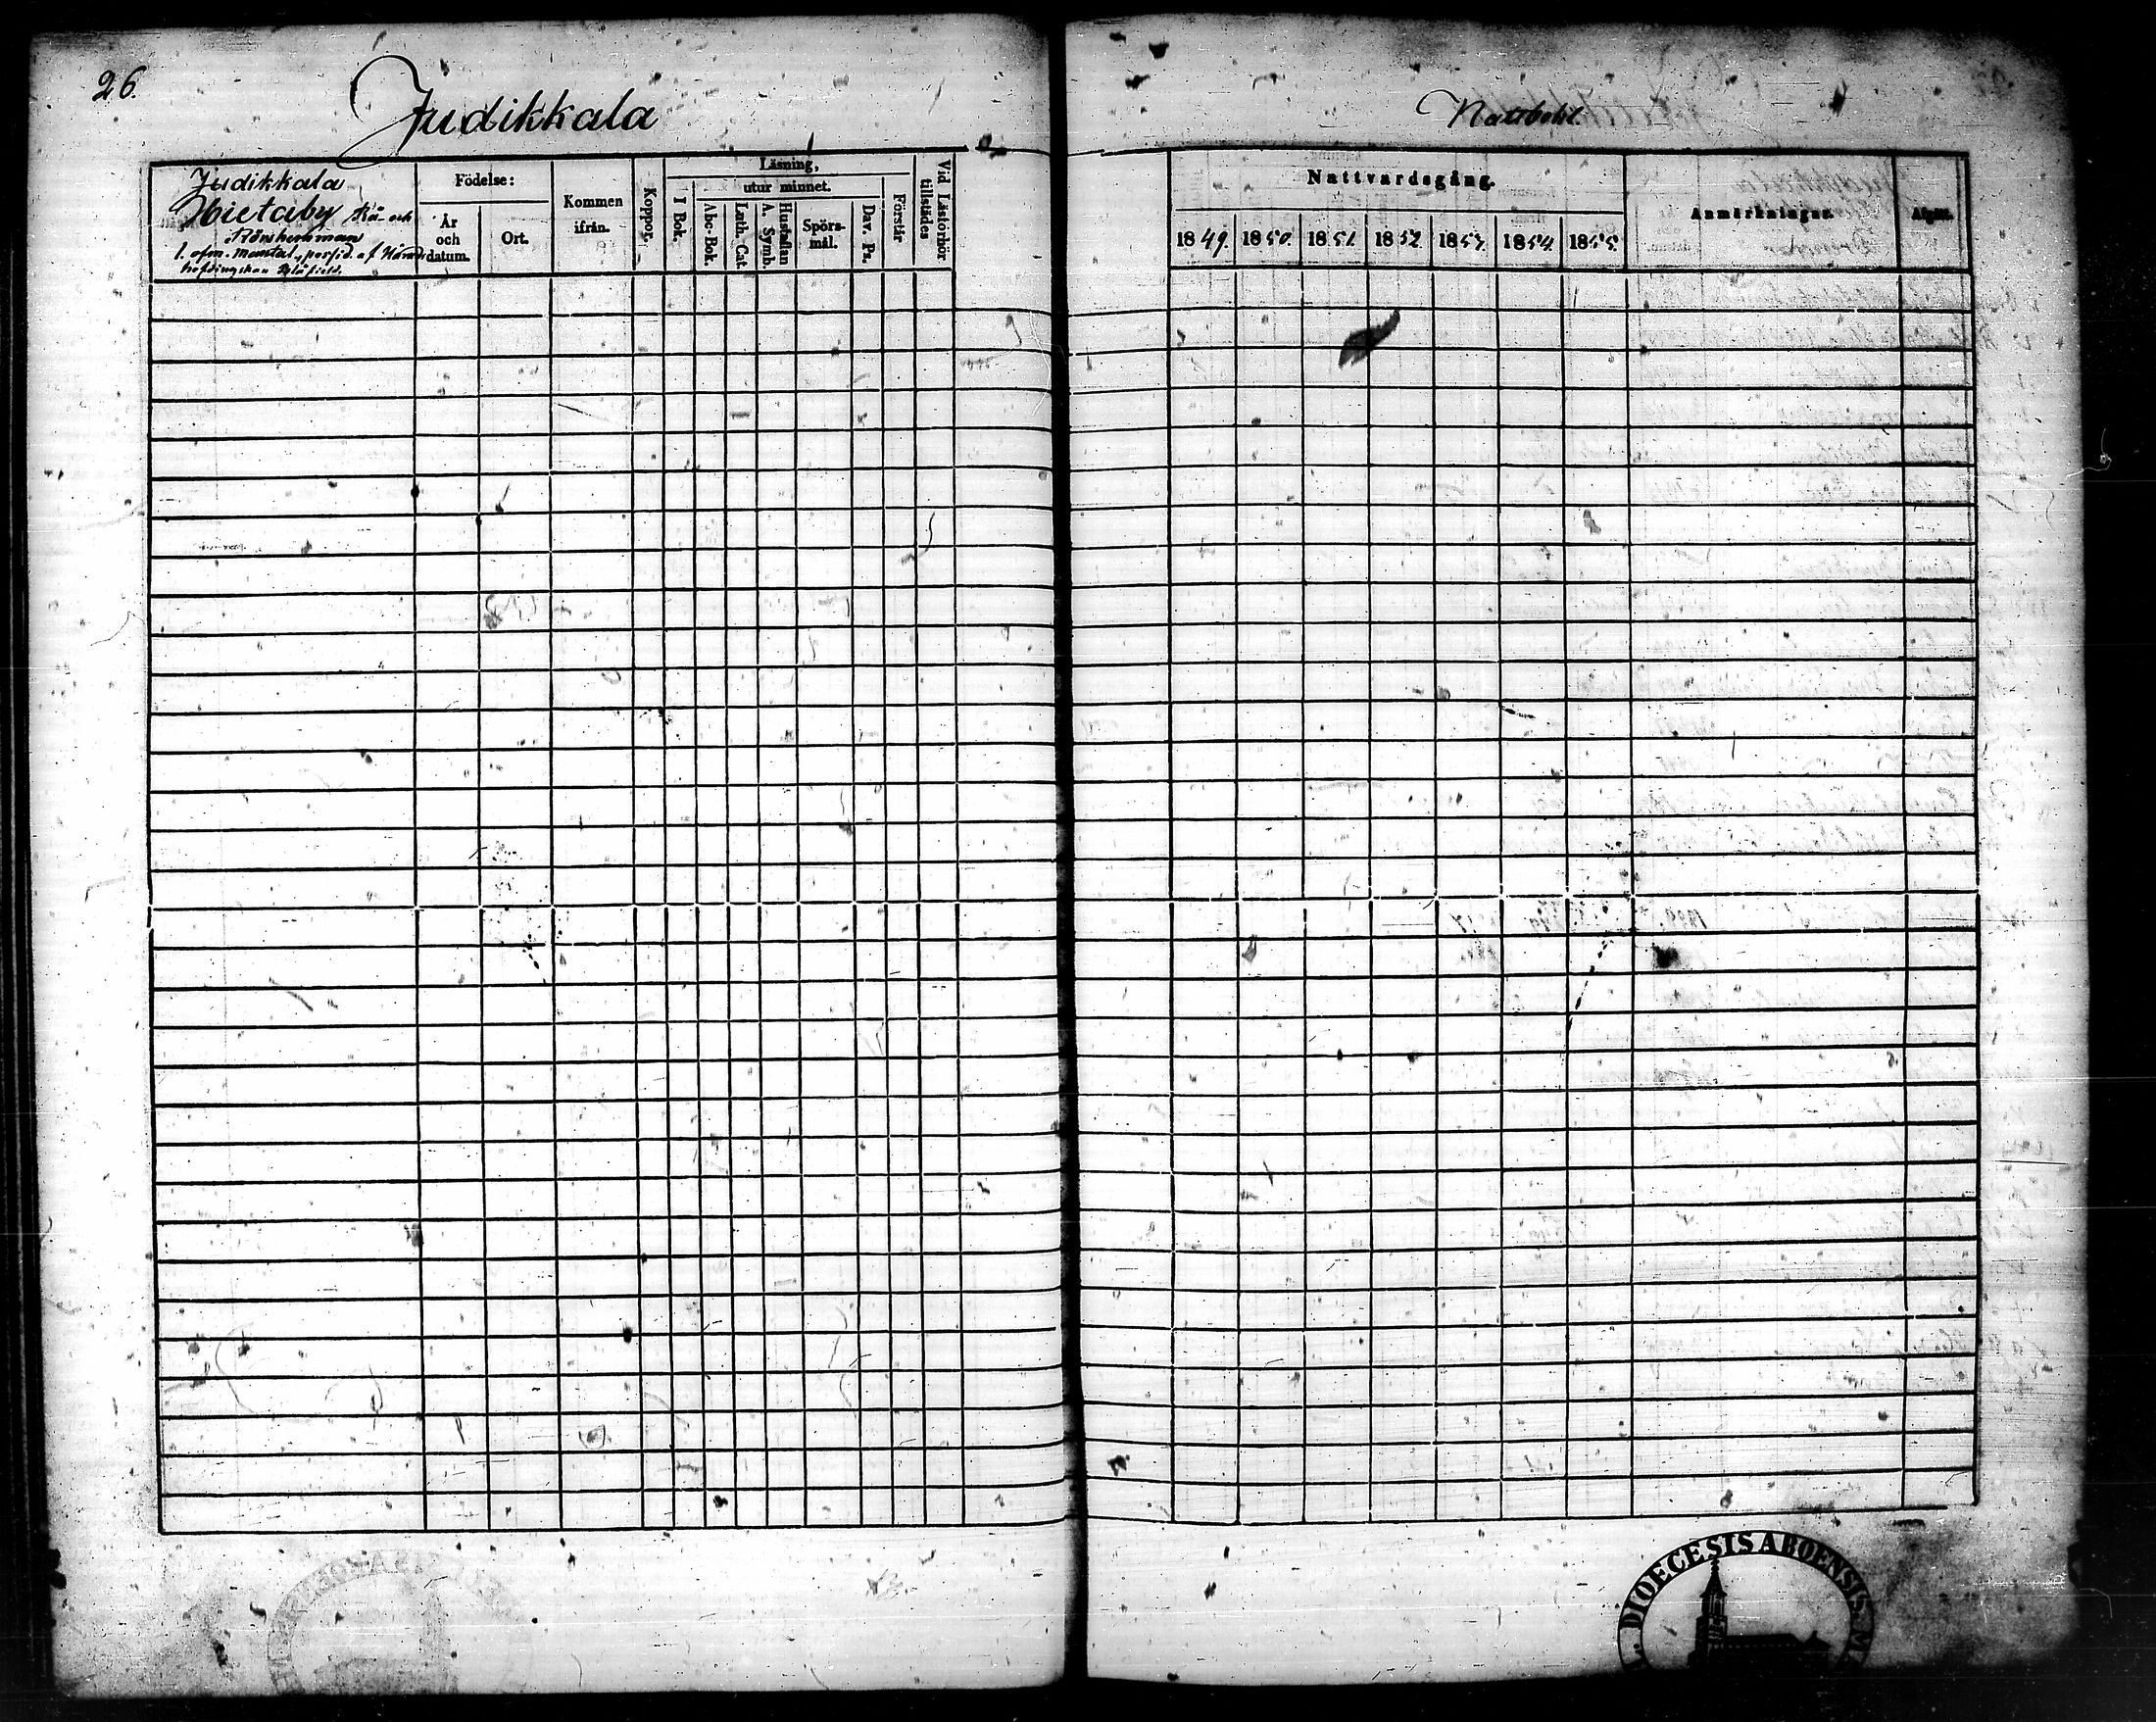 26.
Judikkala
Nattbohl.
Judikkala
Hietaby Rå- och
Rörshemman
1. ofm. Mantal, possid. af Härads
höfdingskan Blåfield.
Födelse:
År
och
datum.
Ort.
Kommen
ifrån.
Koppor.
Läsning,
I Bok.
utur minnet.
Abc-Bok.
Luth. Cat.
Hustaflan
A. Symb.
Spörs-
mål.
Dav. Ps.
Förstår
Vid Läsförhör
tillstädes
Nattvardsgång.
1849.
1850.
1851.
1852.
1853.
1854.
1855.
Anmärkningar.
Afgått.
DIOECESIS ABOENSIS.